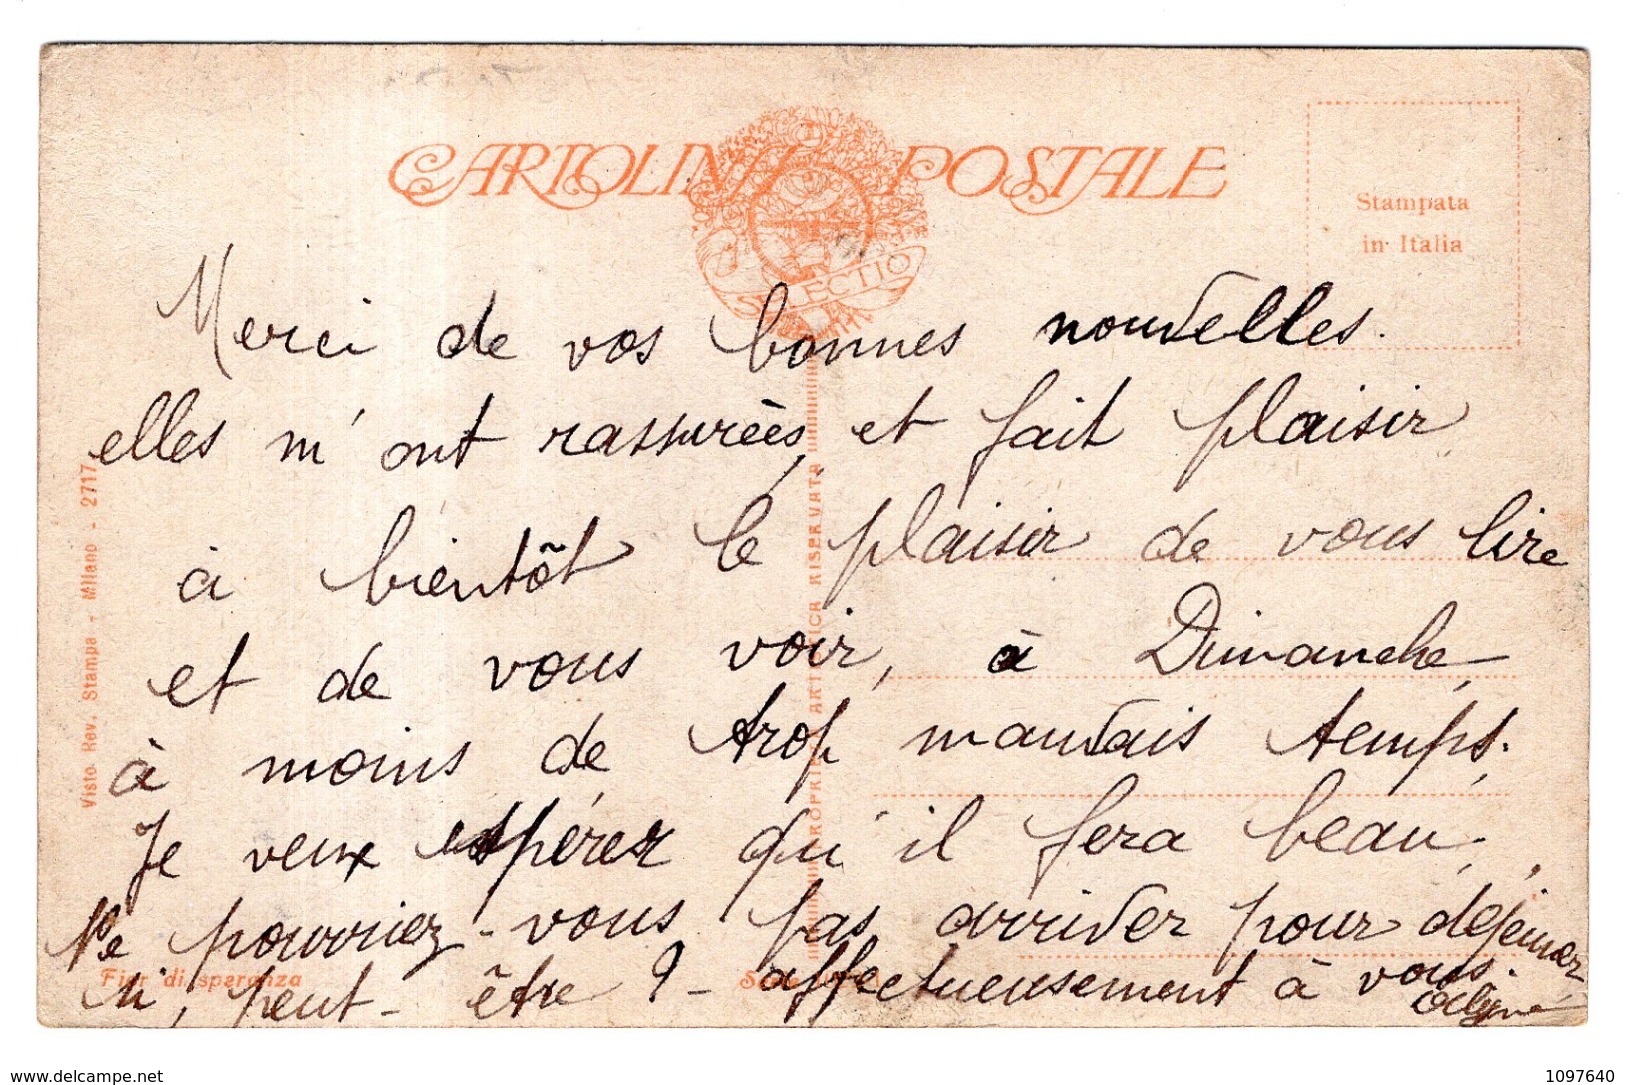 CARTOLINA POSTALE
SELECTIO
Stampata
in Italia
Merci de vos bonnes nouvelles.
elles m'ont rassurées, et fait plaisir
à bientôt le plaisir de vous lire
et de vous voir, à Dimanche,
à moins de trop mauvais temps.
Je veux espérez qu'il fera beau,
Ne pourriez-vous pas arriver pour déjeuner
, peut-être ? - affectueusement à vous.
Visto Rev. Stampa - Milano - 2717
PROPRIETÀ ARTISTICA RISERVATA
Fior di speranza
www.delcampe.net
1097640